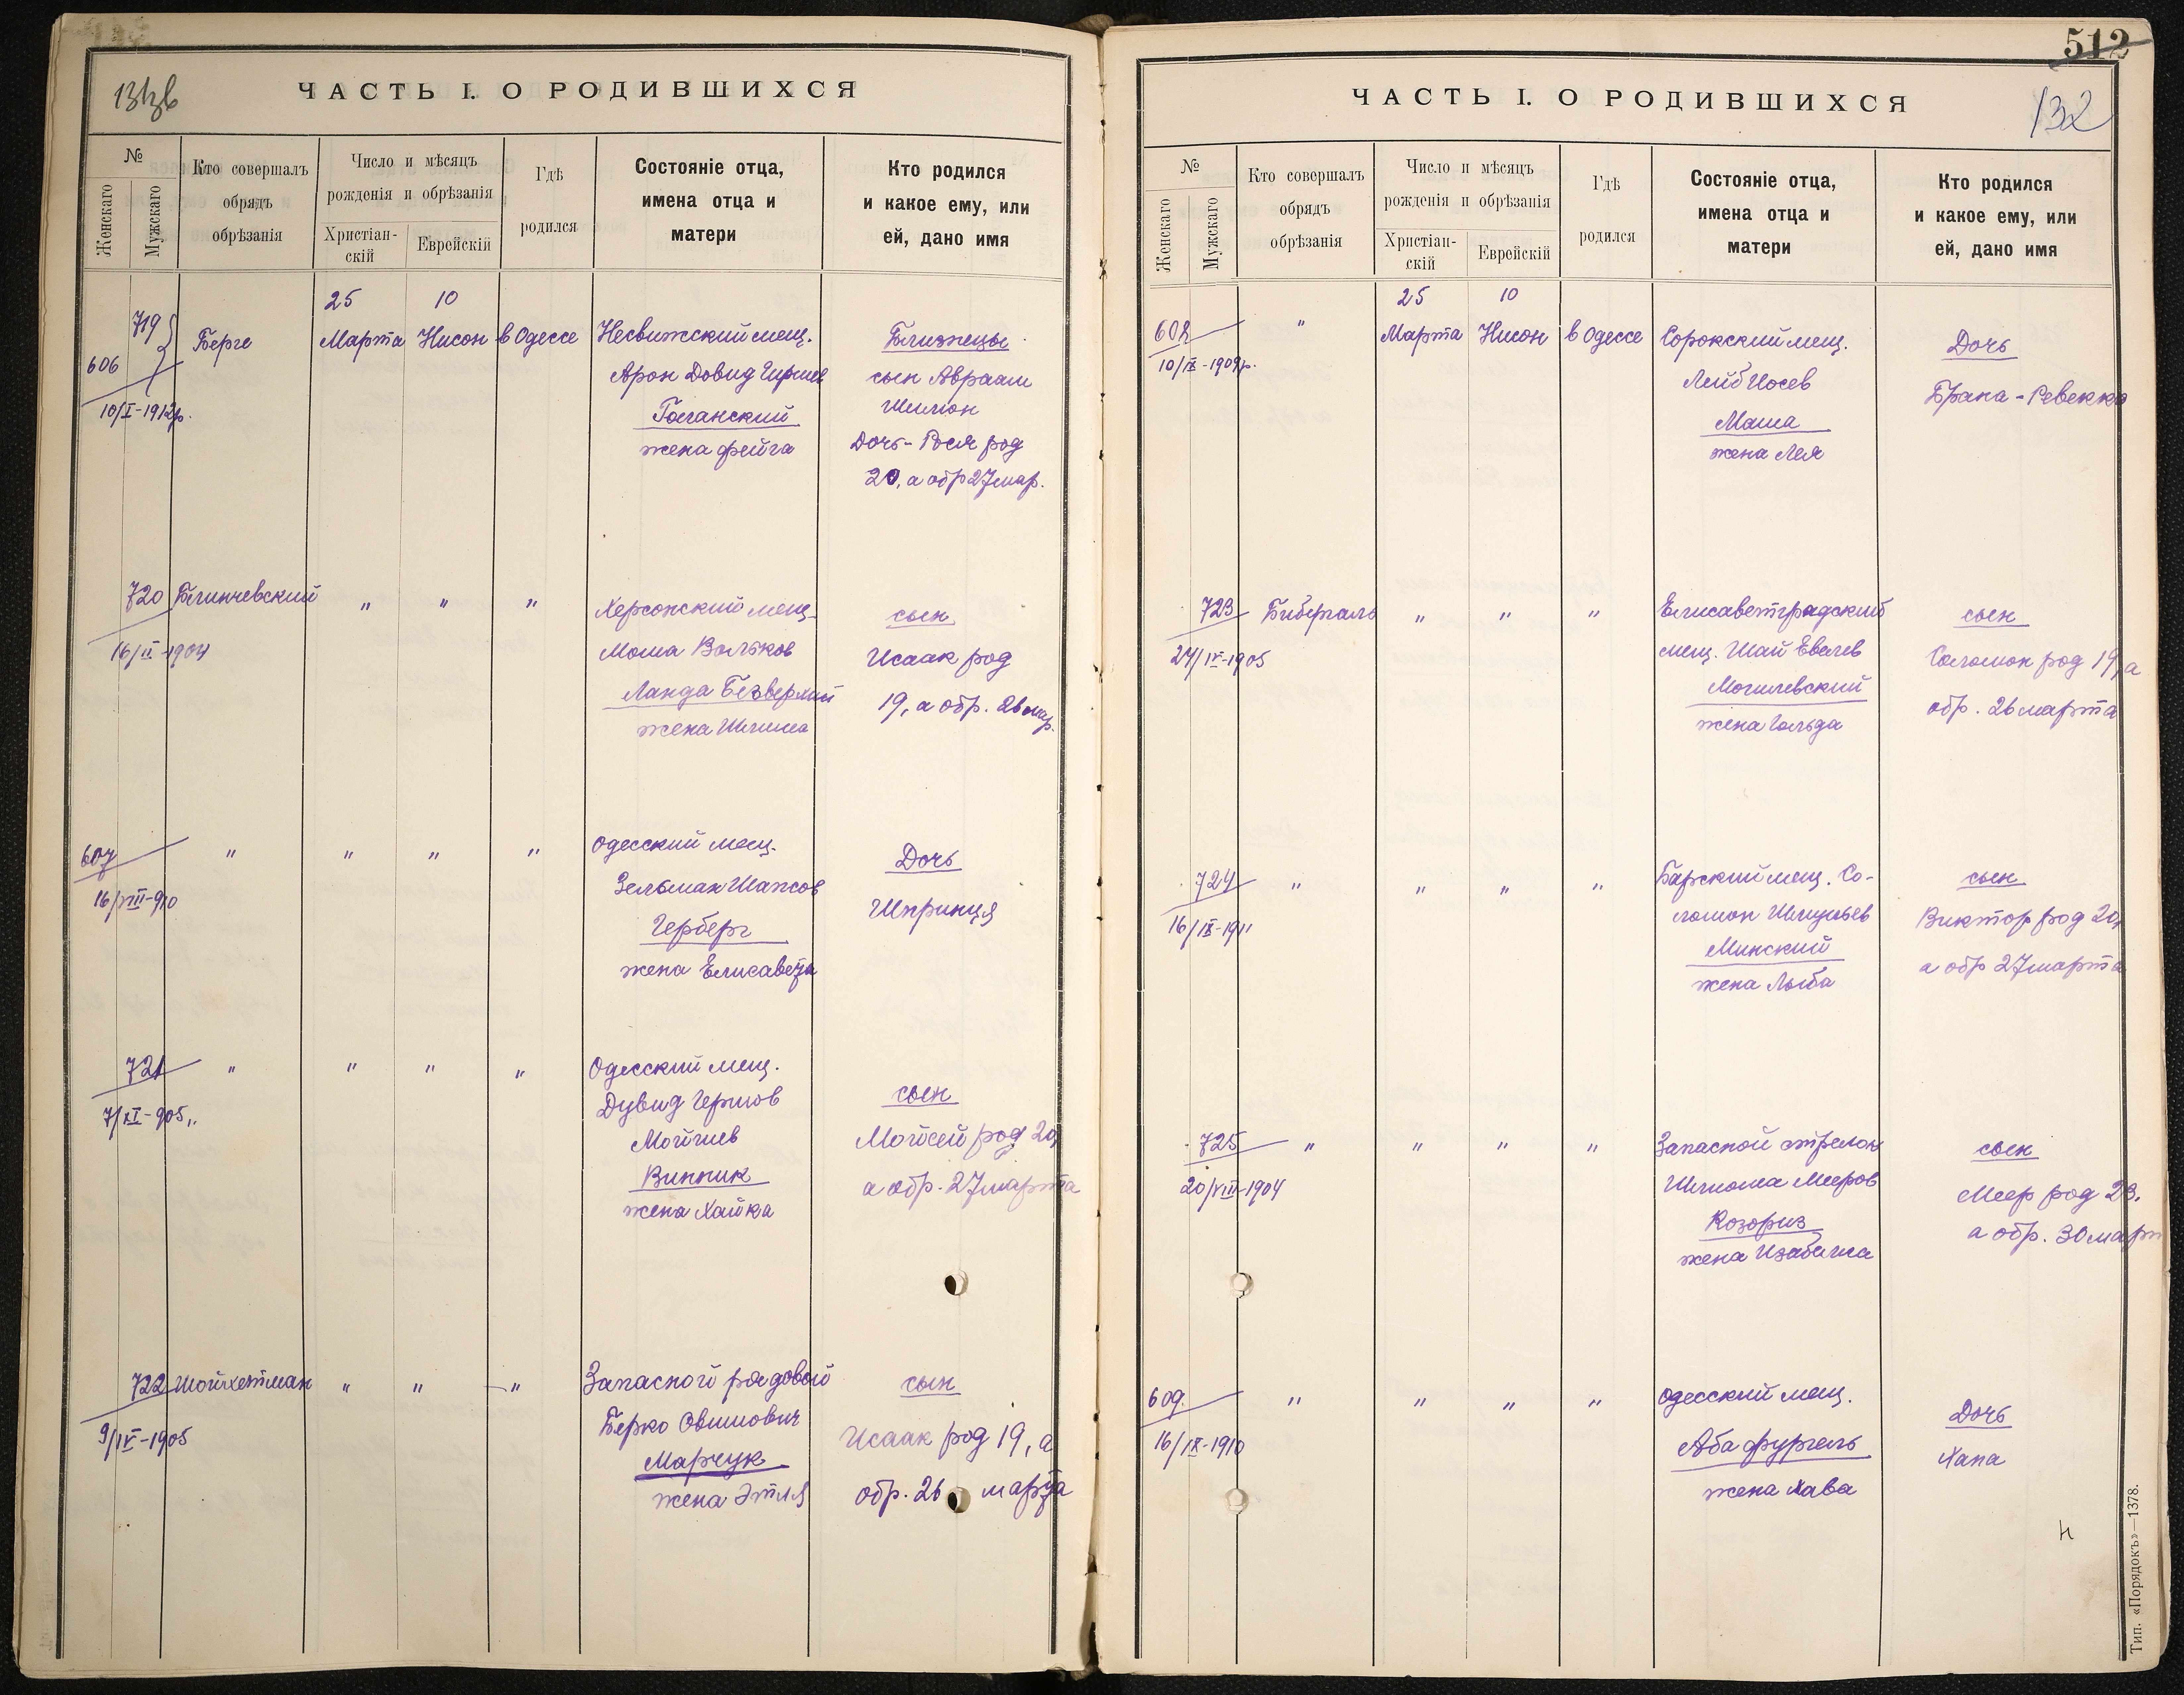 ЧАСТЬ I. О РОДИВШИХСЯ
№
Женскаго
Мужскаго
Кто совершалъ
обрядъ
обрѣзанія
Число и мѣсяцъ
рожденія и обрѣзанія
Христіан-
скій
Еврейскій
Гдѣ
родился
Состояніе отца,
имена отца и
матери
Кто родился
и какое ему, или
ей, дано имя
606
719
10/I-1912г.
Берге
25
Марта
10
Нисон
в Одессе
Несвижский мещ.
Арон Довид Гиршев
Голанский
жена Фейга
Близнецы
сын Авраам
Шимон
Дочь-Рося род
20, а обр 27 мар.
720
16/II-1904
Блинчевский
"
"
"
Херсонский мещ.
Моша Вольков
Ланда Безверхий
жена Шлима
сын
Исаак род
19, а обр. 26 мар.
607
16/VIII-910
"
"
"
"
Одесский мещ.
Зельман Шапсов
Герберг
жена Елисавета
Дочь
Шпринця
721
7/XI-905
"
"
"
"
Одесский мещ.
Дувид Гершов
Мойшев
Винник
жена Хайка
сын
Мойсей род 20,
а обр. 27 марта
722
9/IV-1905
Шойхетман
"
"
"
Запасной рядовой
Берко Овшиович
Марчук
жена Этля
сын
Исаак род 19, а
обр. 26 марта
512
132
ЧАСТЬ I. О РОДИВШИХСЯ
№
Женскаго
Мужскаго
Кто совершалъ
обрядъ
обрѣзанія
Число и мѣсяцъ
рожденія и обрѣзанія
Христіан-
скій
Еврейскій
Гдѣ
родился
Состояніе отца,
имена отца и
матери
Кто родился
и какое ему, или
ей, дано имя
608
10/IX-1909г.
"
25
Марта
10
Нисон
в Одессе
Сорокский мещ.
Лейб Иосев
Маша
жена Лея
Дочь
Брана-Ревекка
723
27/IV-1905
Бибергаль
"
"
"
Елисаветградский
мещ. Шай Евелев
Могилевский
жена Гольда
сын
Соломон род 19, а
обр. 26 марта
724
16/IX-1911
"
"
"
"
Барский мещ. Со-
ломон Шмульев
Минский
жена Люба
сын
Виктор род 20,
а обр 27 марта
725
20/VIII-1904
"
"
"
"
Запасной стрелок
Шлиома Мееров
Козориз
жена Изабелла
сын
Меер род 23,
а обр. 30 март
609
16/IX-1910
"
"
"
"
Одесский мещ.
Аба Фургель
жена Хава
Дочь
Хана
Тип. «Порядокъ»—1378.